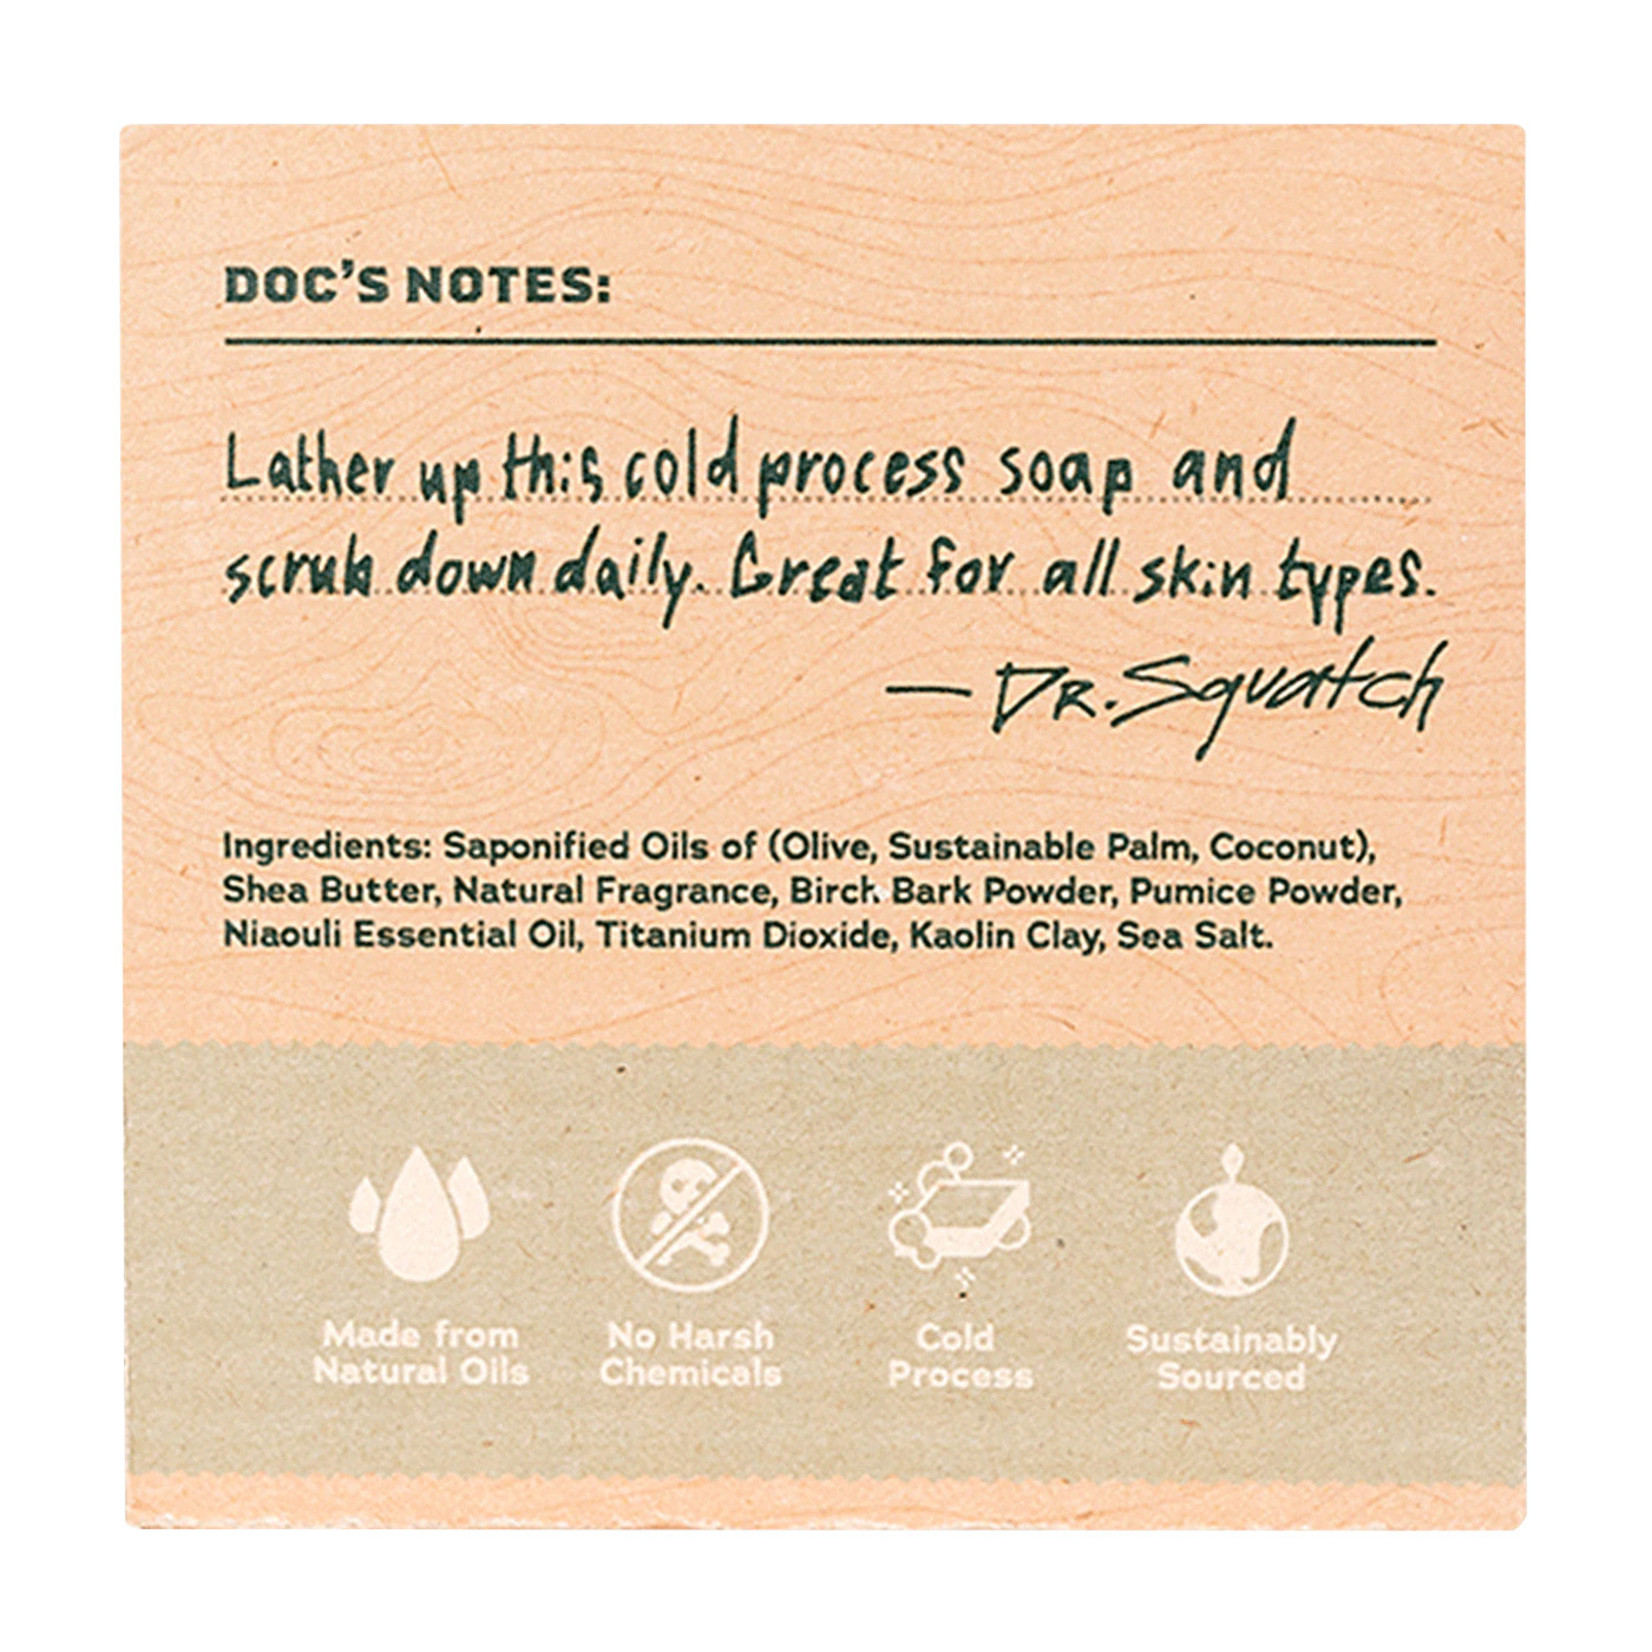 DOC'S NOTES:
Lather up this cold process soap and
scrub down daily. Great for all skin types.
— DR. Squatch
Ingredients: Saponified Oils of (Olive, Sustainable Palm, Coconut),
Shea Butter, Natural Fragrance, Birch Bark Powder, Pumice Powder,
Niaouli Essential Oil, Titanium Dioxide, Kaolin Clay, Sea Salt.
Made from
Natural Oils
No Harsh
Chemicals
Cold
Process
Sustainably
Sourced